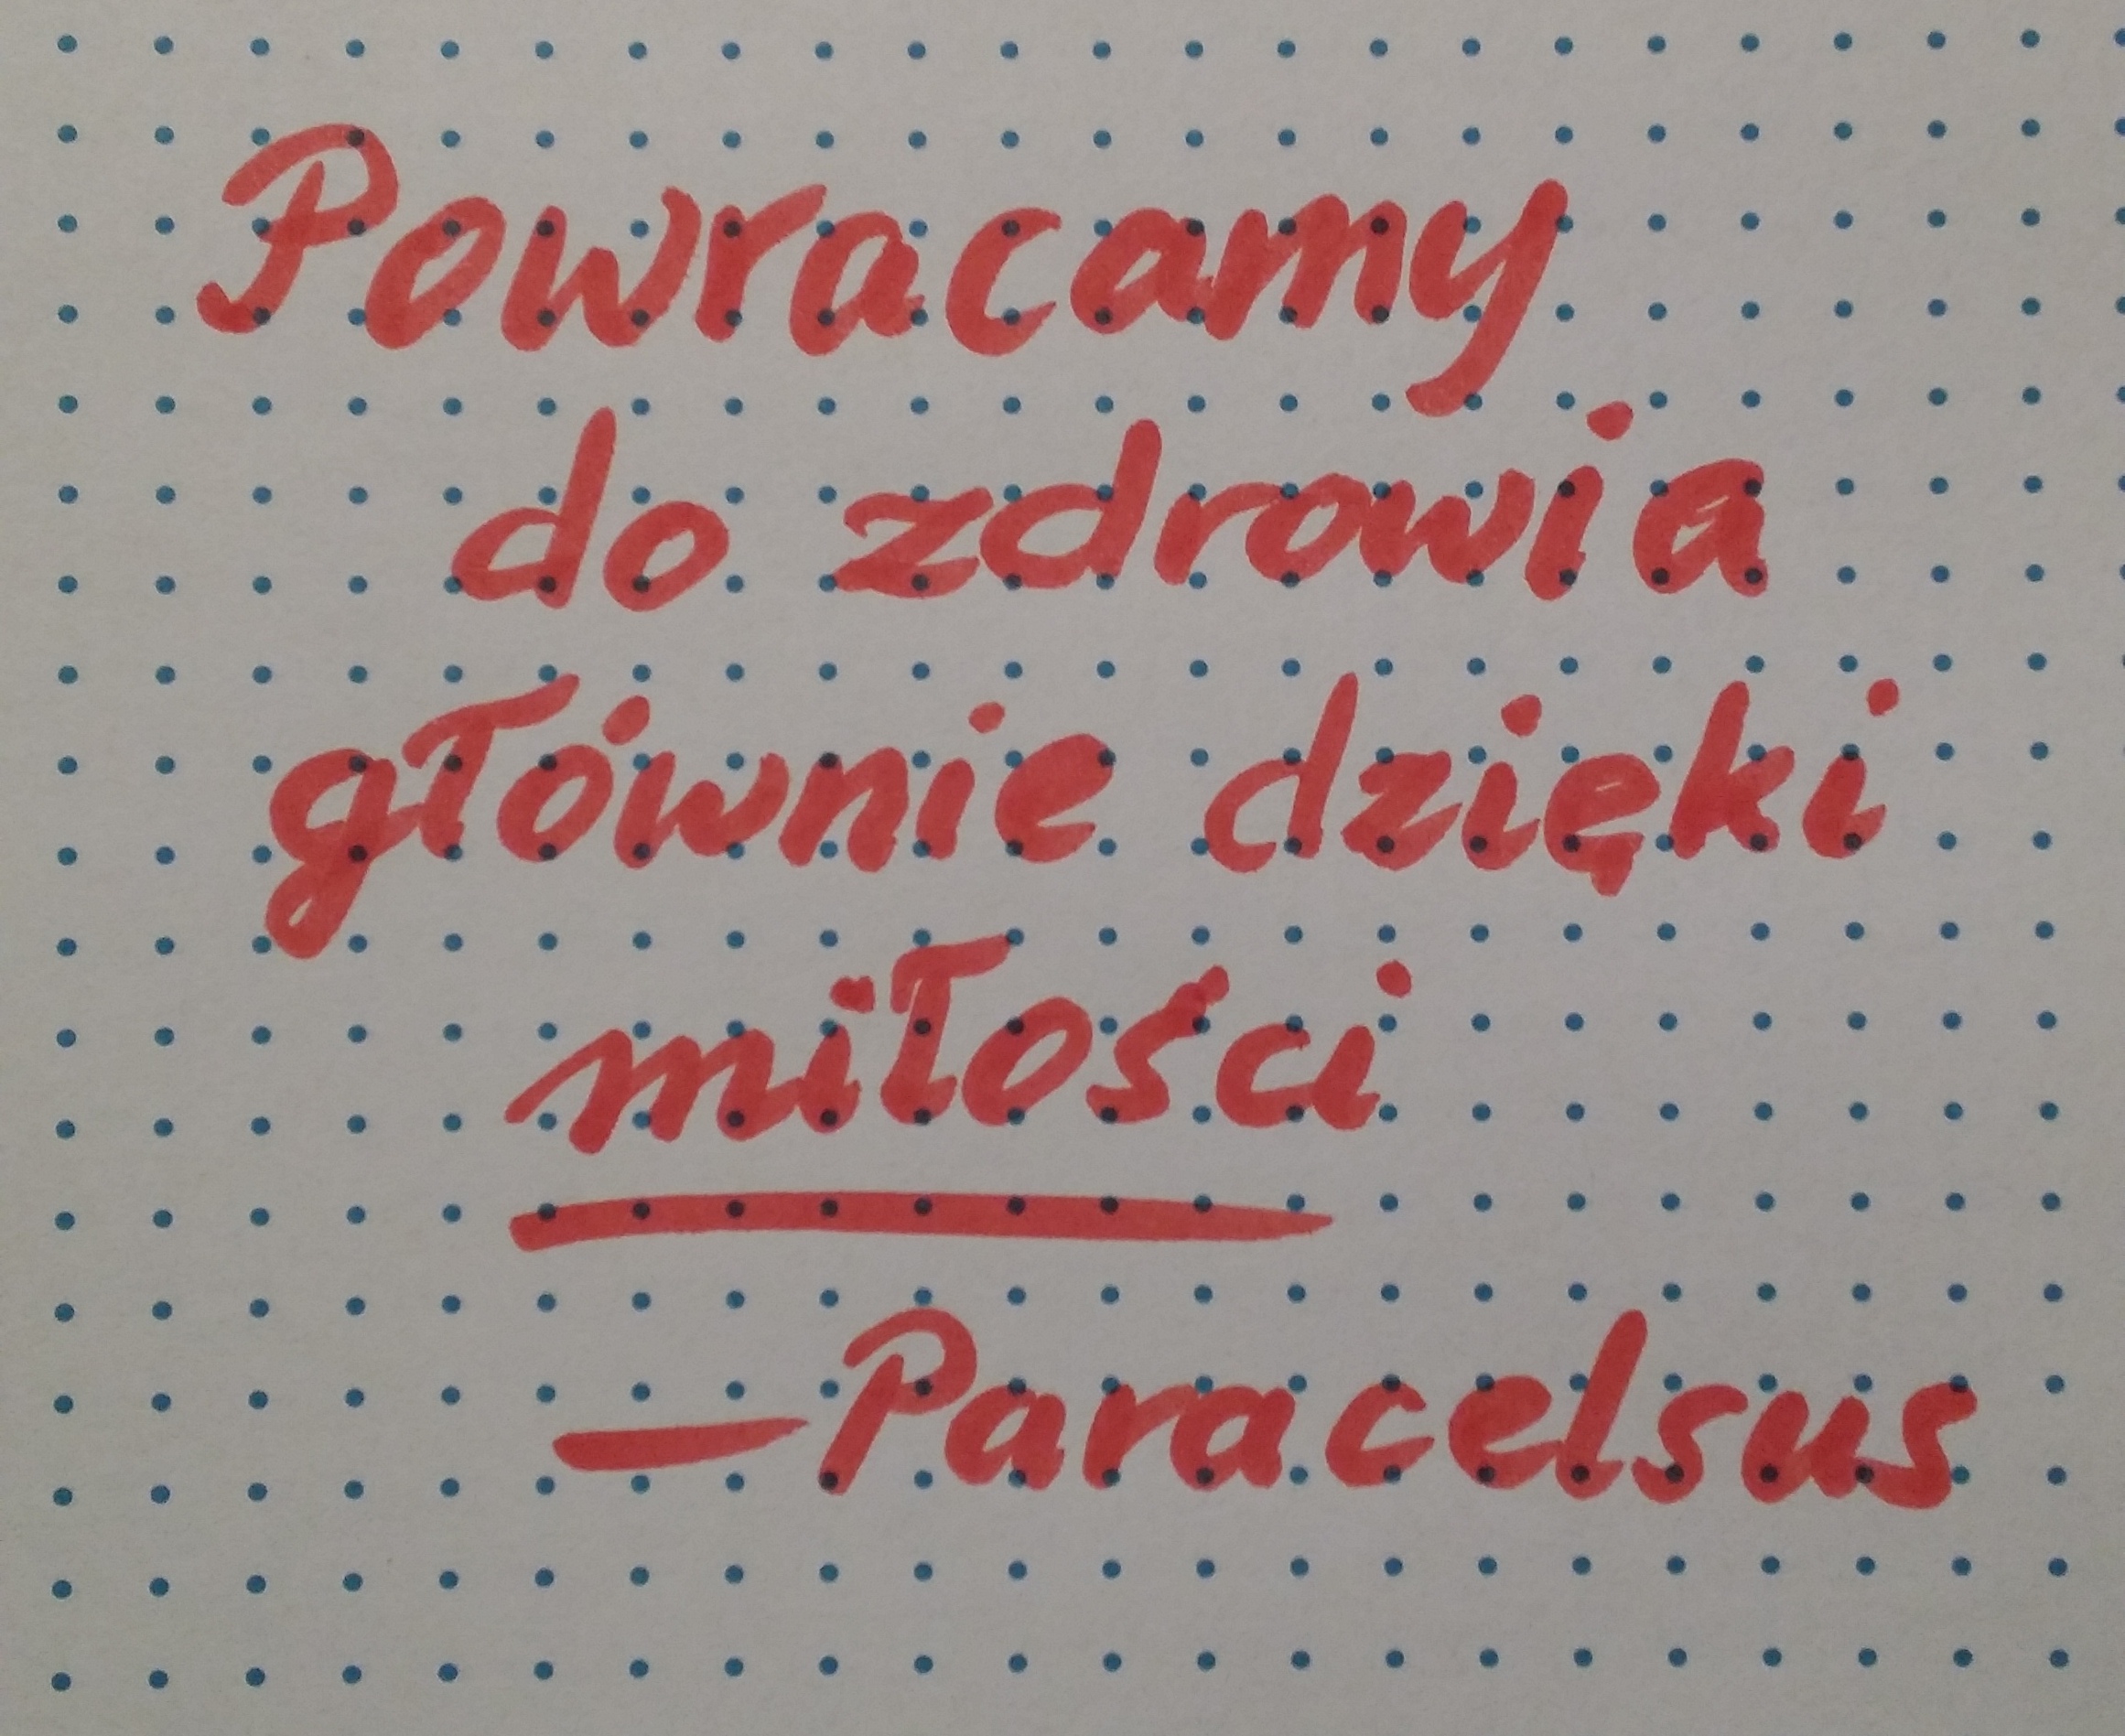 Powracamy
do zdrowia
głównie dzięki
miłości
—Paracelsus